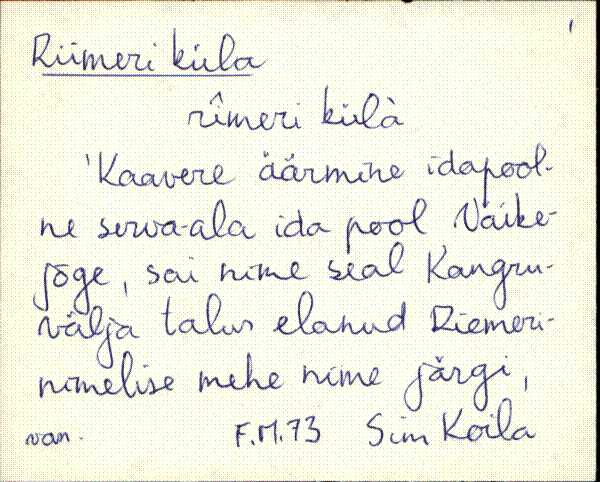 Riimeri küla
rîmeri külà
'Kaavere äärmine idapool-
ne serva-ala ida pool Väike-
jõge, sai nime seal Kangru-
välja talus elanud Riemeri-
nimelise mehe nime järgi,
van. F.M.73 Sim Koila